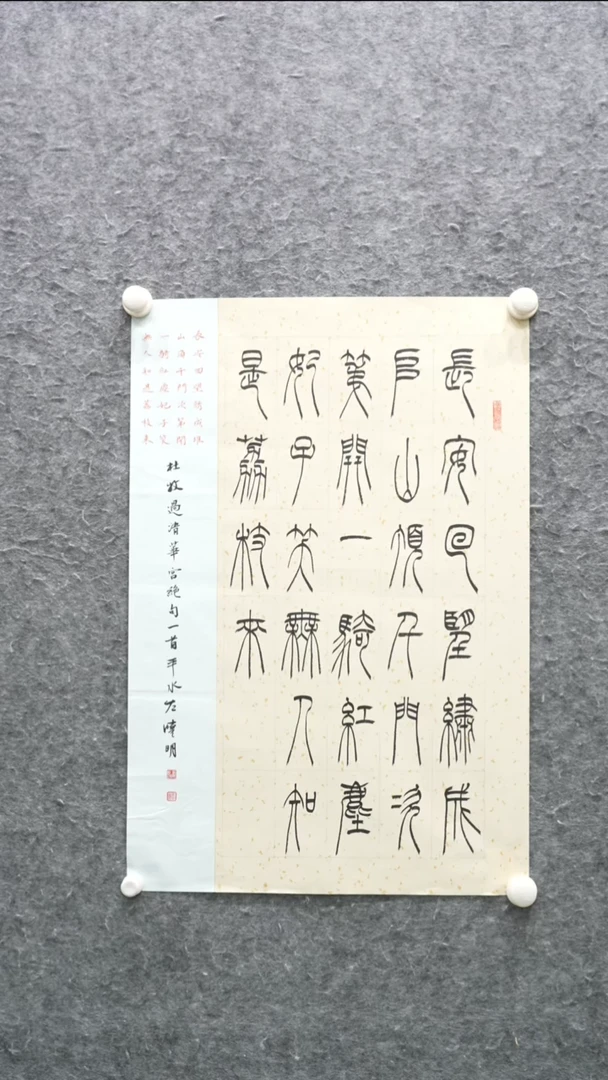 長安回望繡成
𠂤山頂千門次
第開一騎紅塵
妃子笑無人知
是荔枝來
長安回望繡成堆
山頂千門次第開
一騎紅塵妃子笑
無人知是荔枝来
杜牧過清華宮絶句一首平水左暐明